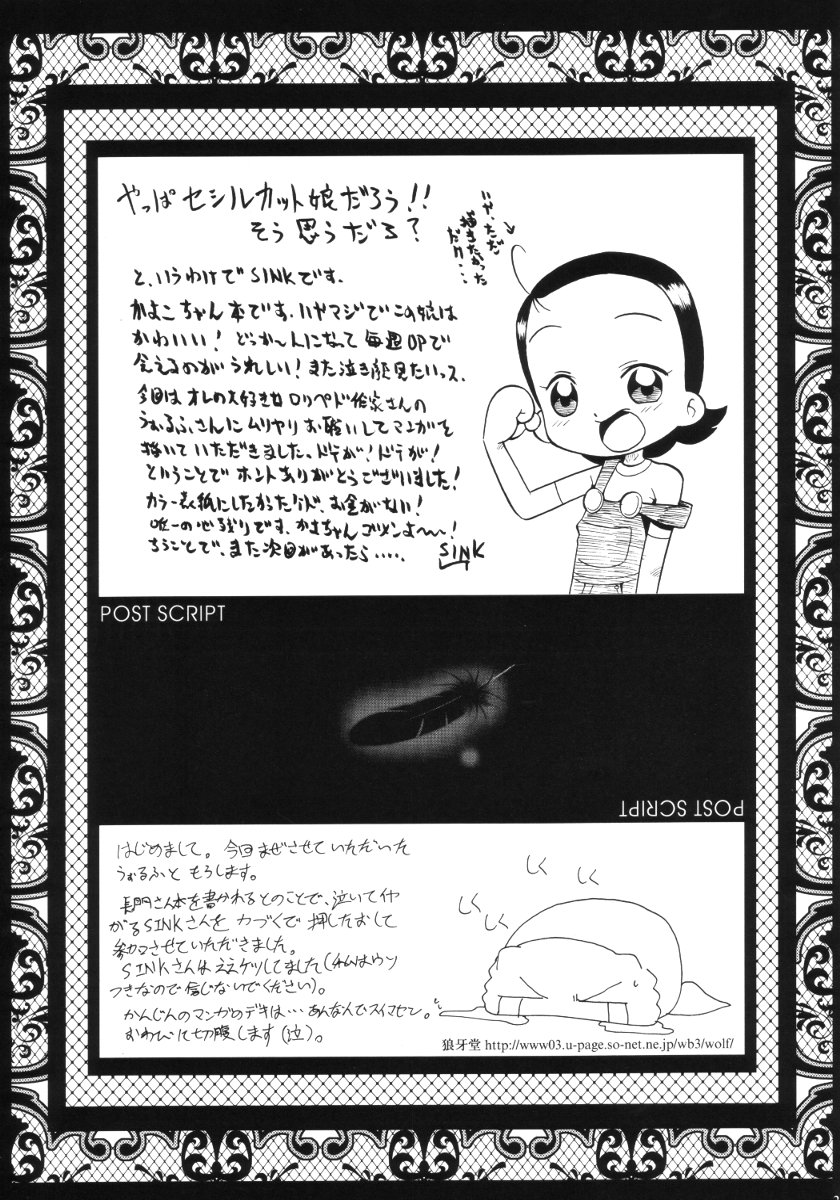 やっぱセシルカット娘だろう!!
そう思うだろ？
いや、ただ
描きたかった
だけ・・
と、いうわけでSINKです。
かよこちゃん本です。いやマジでこの娘は
かわいい！どっか〜人になって毎週OPで
会えるのがうれしい！また泣き顔見たいっス。
今回はオレの大好きなロリペド作家さんの
うぉるふさんにムリヤリお願いしてマンガを
描いていただきました。ドテが！ドテが！
ということでホントありがとうございました！
カラー表紙にしたかったけど、お金がない！
唯一の心残りです。かよちゃんゴメンよ〜〜！
ちうことで、また次回があったら・・・・・
SINK
POST SCRIPT
POST SCRIPT
はじめまして。今回まぜさせていただいた
うぉるふと もうします。
長門さん本を書かれるとのことで、泣いてイヤ
がるSINKさんを 力づくで 押したおして
参加させていただきました。
SINKさんはええケツしてました（私はウソ
つきなので信じないでください）。
かんじんのマンガのデキは…あんなんでスイマセン。
おわびに切腹します（泣）。
しく
しく
しく
しく
狼牙堂 http://www03.u-page.so-net.ne.jp/wb3/wolf/